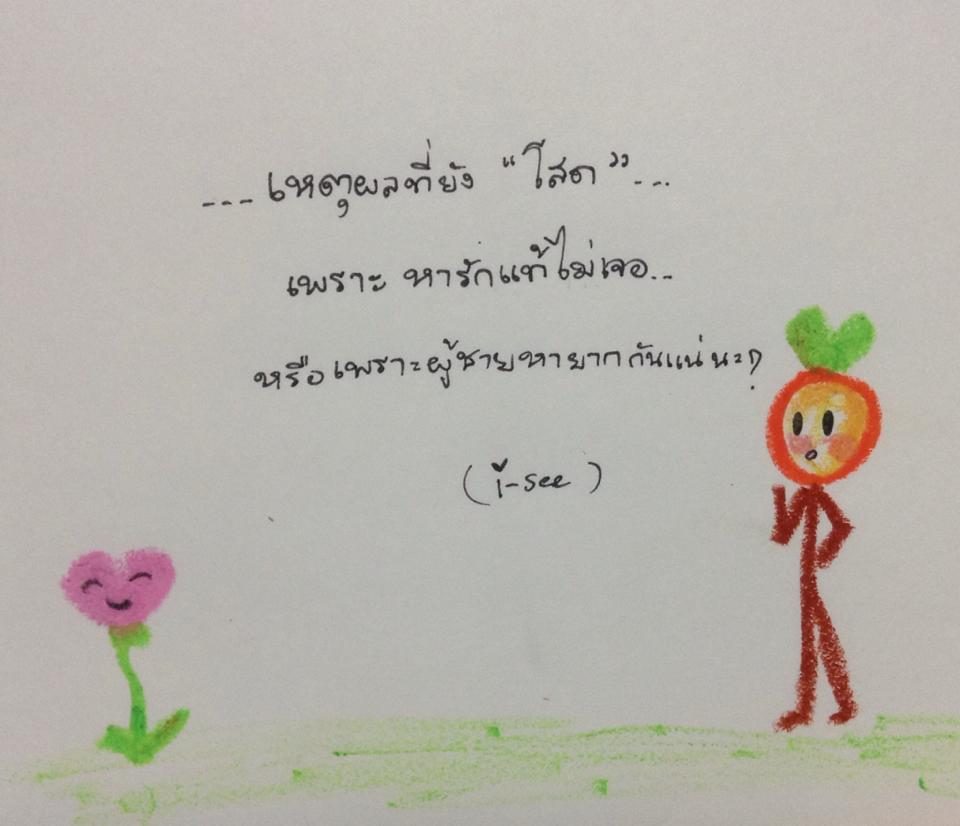 ... เหตุผลที่ยัง "โสด"...
เพราะ หารักแท้ไม่เจอ...
หรือเพราะผู้ชายหายากกันแน่นะ?
(i-see)